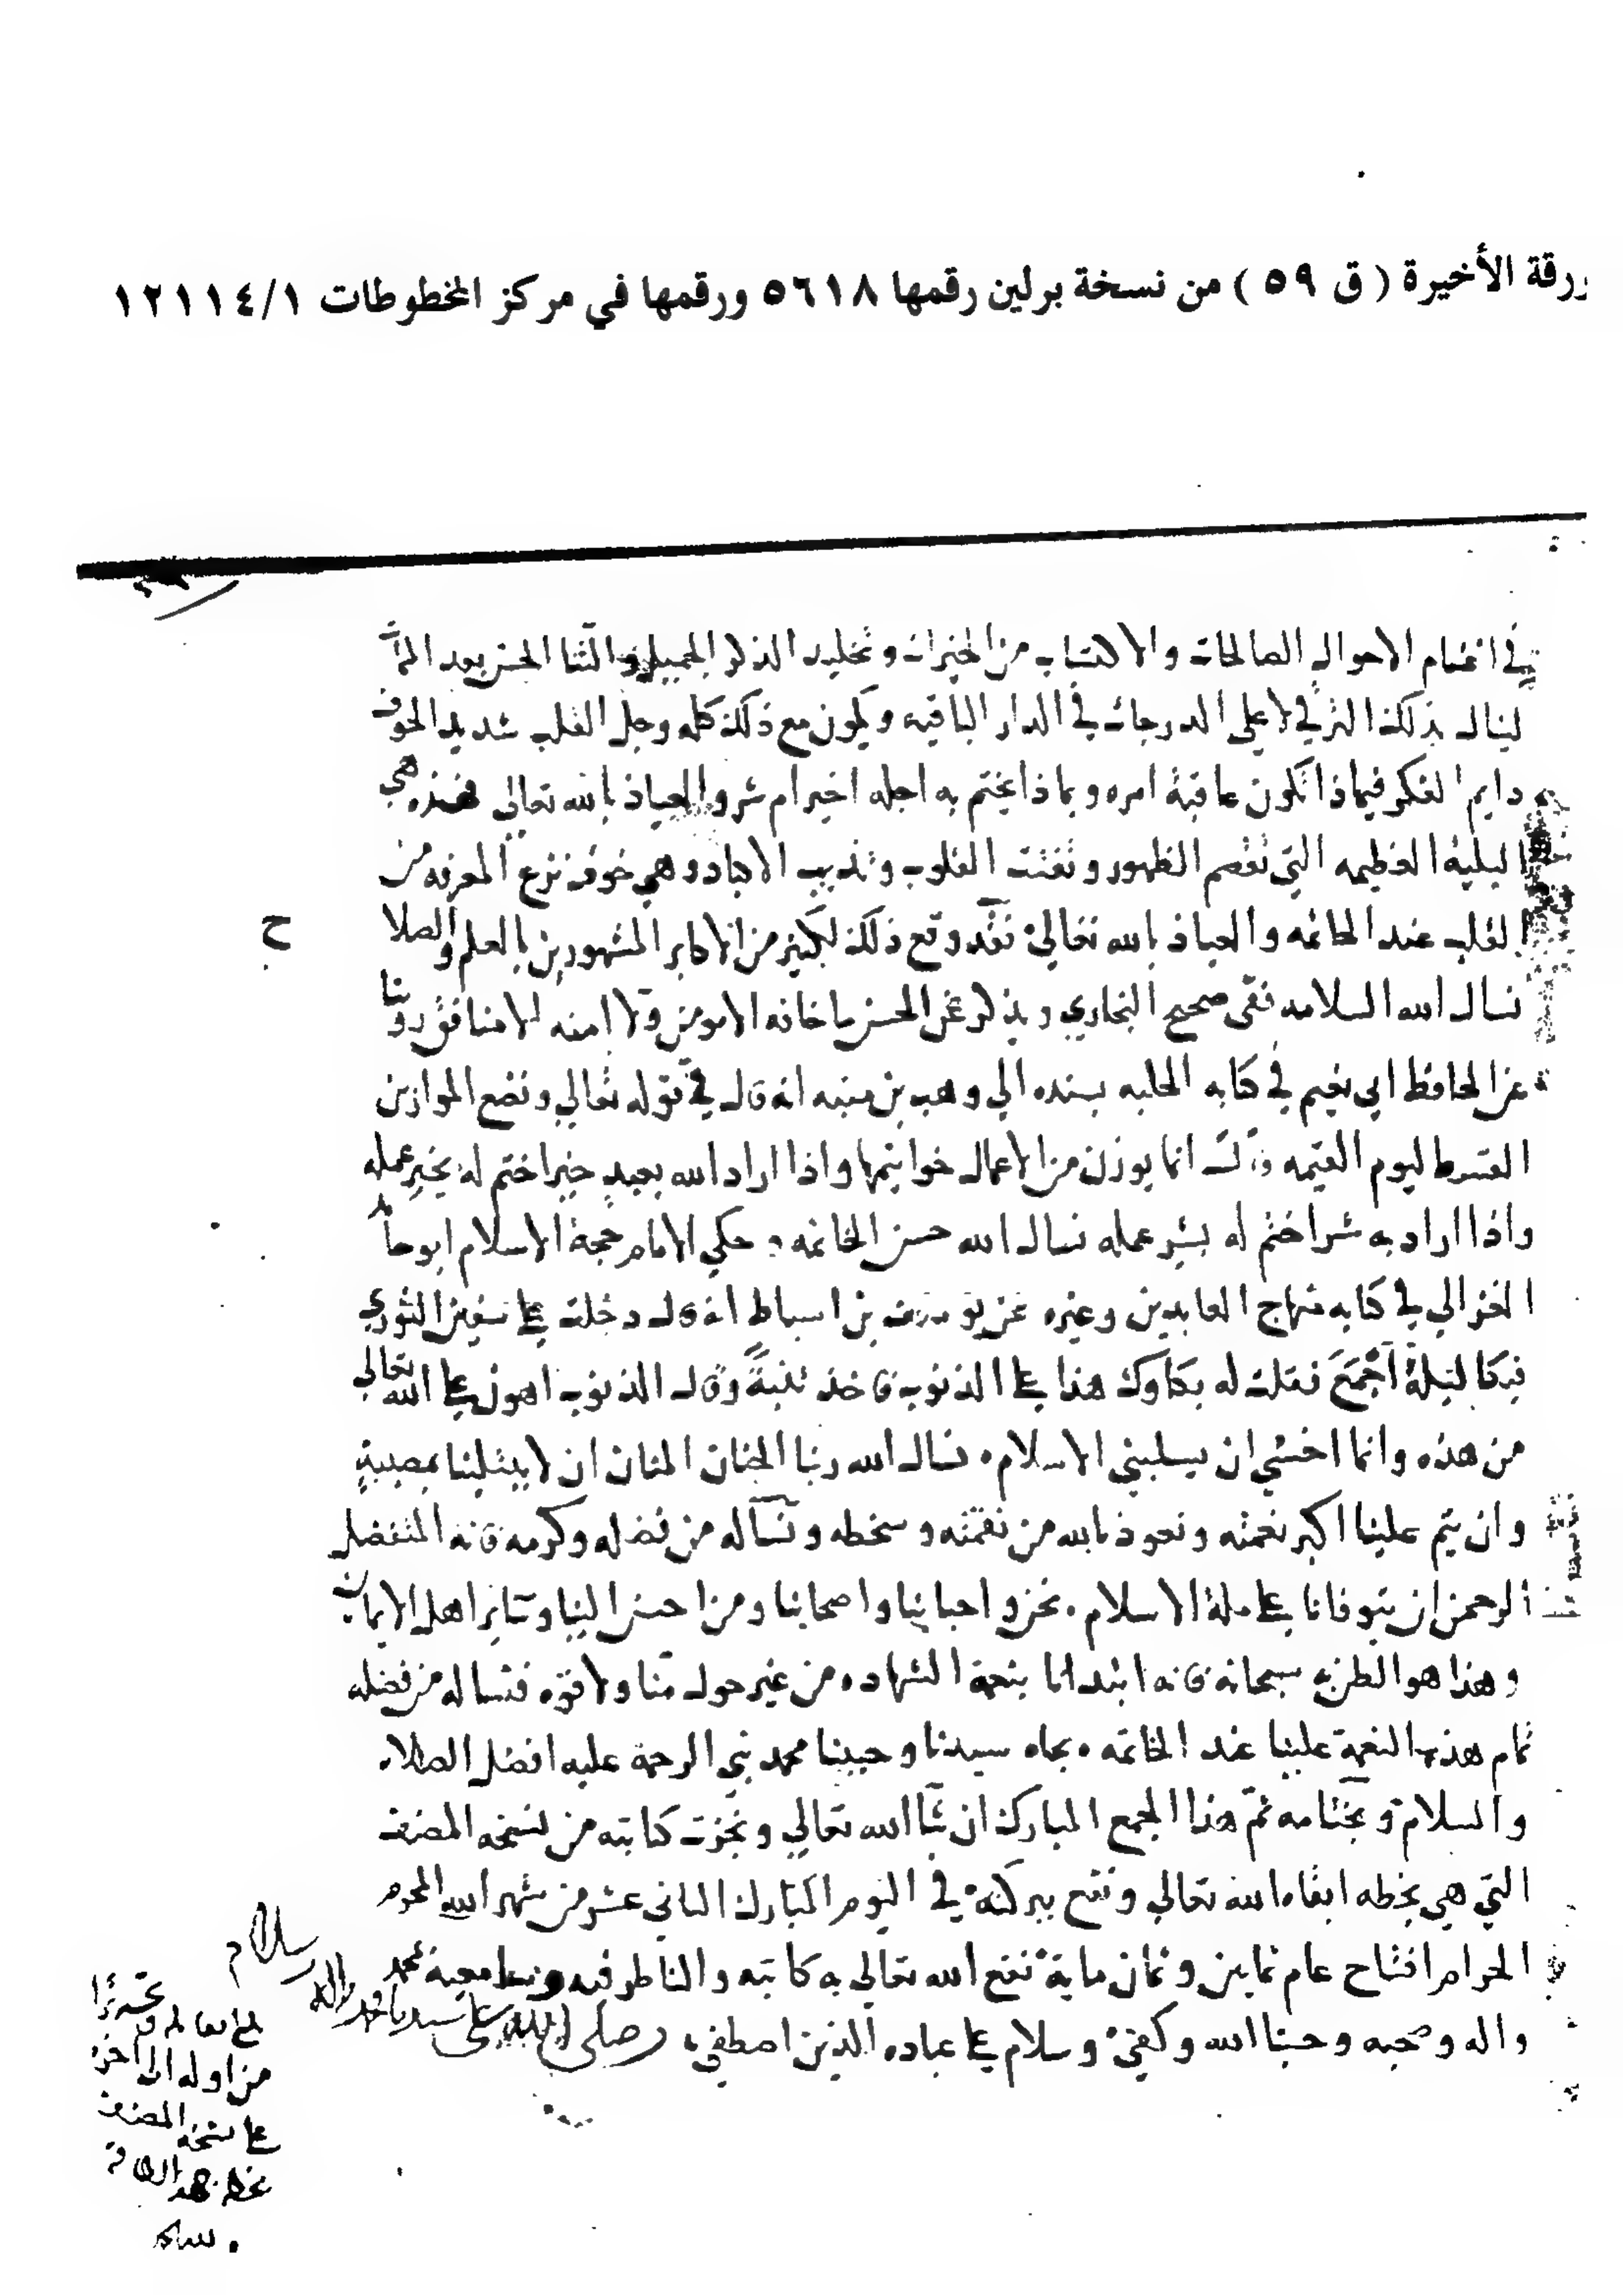 ورقة الأخيرة ( ق ٥٩ ) من نسخة برلين رقمها ٥٦١٨ ورقمها في مركز المخطوطات ١٢١١٤/١
في اغتنام الاحوال الصالحات والاكتساب من الخيرات وتخليد الذكر الجميل والثنا الحسن بعد
لينال بذلك الترقي لاعلى الدرجات في الدار الباقيه ويكون مع ذلك كله وجل القلب شديد الخوف
دايم الفكر فيماذا تكون عاقبة امره وبماذا يختم به اجله اخير ام شر والعياذ بالله تعالى فهذه هي
البلية العظيمه التي تقصم الظهور وتفتت القلوب وتذيب الاكباد وهي خوف نزع المعرفه من
القلب عند الخاتمه والعياذ بالله تعالى فقد وقع ذلك لكثير من الاكابر المشهورين بالعلم والصلا
ح
نسال الله السلامه ففي صحيح البخاري ويذكر عن الحسن ما خافه الا مومن ولا امنه الا منافق روينا
عن الحافظ ابي نعيم في كتابه الحليه بسنده الي وهب بن منبه انه قال في قوله تعالي ونضع الموازين
القسط ليوم القيمه قال انما يوزن من الاعمال خواتيمها واذا اراد الله بعبد خيرا ختم له بخير عمله
واذا اراد به شرا ختم له بشر عمله نسال الله حسن الخاتمه وحكي الامام حجة الاسلام ابو حامد
الغزالي في كتابه منهاج العابدين وغيره عن يوسف بن اسباط انه قال دخلت على سفين الثوري
فبكا ليلة اجمع فقلت له بكاوك هذا على الذنوب فاخذ تبنة وقال الذنوب اهون على الله تعالي
من هذه وانما اخشي ان يسلبني الاسلام نسال الله ربنا الحنان المنان ان لا يبتلينا بمصيبة
وان يتم علينا اكبر نعمته ونعوذ بالله من نقمته وسخطه ونساله من فضله وكرمه فانه المتفضل
الرحمن ان يتوفانا على ملة الاسلام نحن واحبابنا واصحابنا ومن احسن الينا وساير اهل الايمان
وهذا هو الظن به سبحانه فانه ابتدانا بنعمة الشهاده من غير حول منا ولا قوه فنساله من فضله
تمام هذه النعمة علينا عند الخاتمه بجاه سيدنا وحبيبنا محمد نبي الرحمة عليه افضل الصلاه
والسلام وبختامه تم هذا الجمع المبارك ان شا الله تعالي ونجزت كتابته من نسخه المصنف
التي هي بخطه ابقاه الله تعالي ونفع ببركته في اليوم المبارك الثاني عشر من شهر الله المحرم
الحرام افتتاح عام ثمانين وثمان ماية نفع الله تعالي به كاتبه والناظر فيه محمد
واله وصحبه وحسبنا الله وكفى وسلام على عباده الذين اصطفى وصلى الله على سيدنا محمد واله وسلام
من اوله الى اخره
على نسخة المصنف